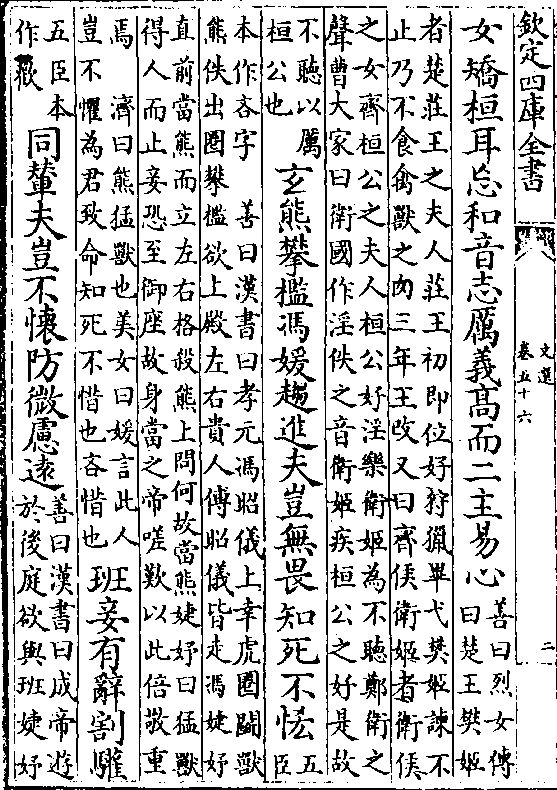 欽定四庫全書
文選
卷五十六
二
女矯桓耳忘和音志厲義髙而二主易心
善曰烈女傳
曰楚王樊姬
者楚莊王之夫人莊王初即位好狩獵畢弋樊姬諫不
止乃不食禽獸之肉三年王改又曰齊侯衛姬者衛侯
之女齊桓公之夫人桓公好淫樂衛姬為不聽鄭衛之
聲曹大家曰衛國作淫佚之音衛姬疾桓公之好是故
不聽以厲
桓公也
玄熊攀檻馮媛趍進夫豈無畏知死不恡
五
臣
本作吝字 善曰漢書曰孝元馮昭儀上幸虎圈鬬獸
熊佚出圈攀檻欲上殿左右貴人傅昭儀皆走馮婕妤
直前當熊而立左右格殺熊上問何故當熊婕妤曰猛獸
得人而止妾恐至御座故身當之帝嗟歎以此倍敬重
焉 濟曰熊猛獸也美女曰媛言此人
豈不懼為君致命知死不惜也吝惜也
班妾有辭割驩
五臣本
作歡
同輦夫豈不懷防微慮遠
善曰漢書曰成帝遊
於後庭欲與班婕妤